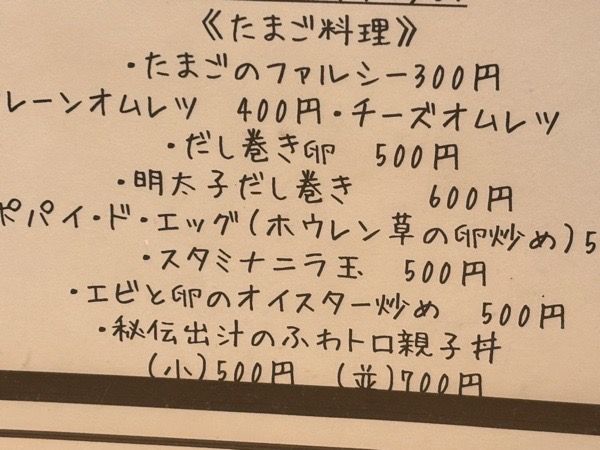 《たまご料理》
・たまごのファルシー300円
レーンオムレツ 400円・チーズオムレツ
・だし巻き卵 500円
・明太子だし巻き 600円
ポパイ・ド・エッグ(ホウレン草の卵炒め)5
・スタミナニラ玉 500円
・エビと卵のオイスター炒め 500円
・秘伝出汁のふわトロ親子丼
(小)500円 (並)700円